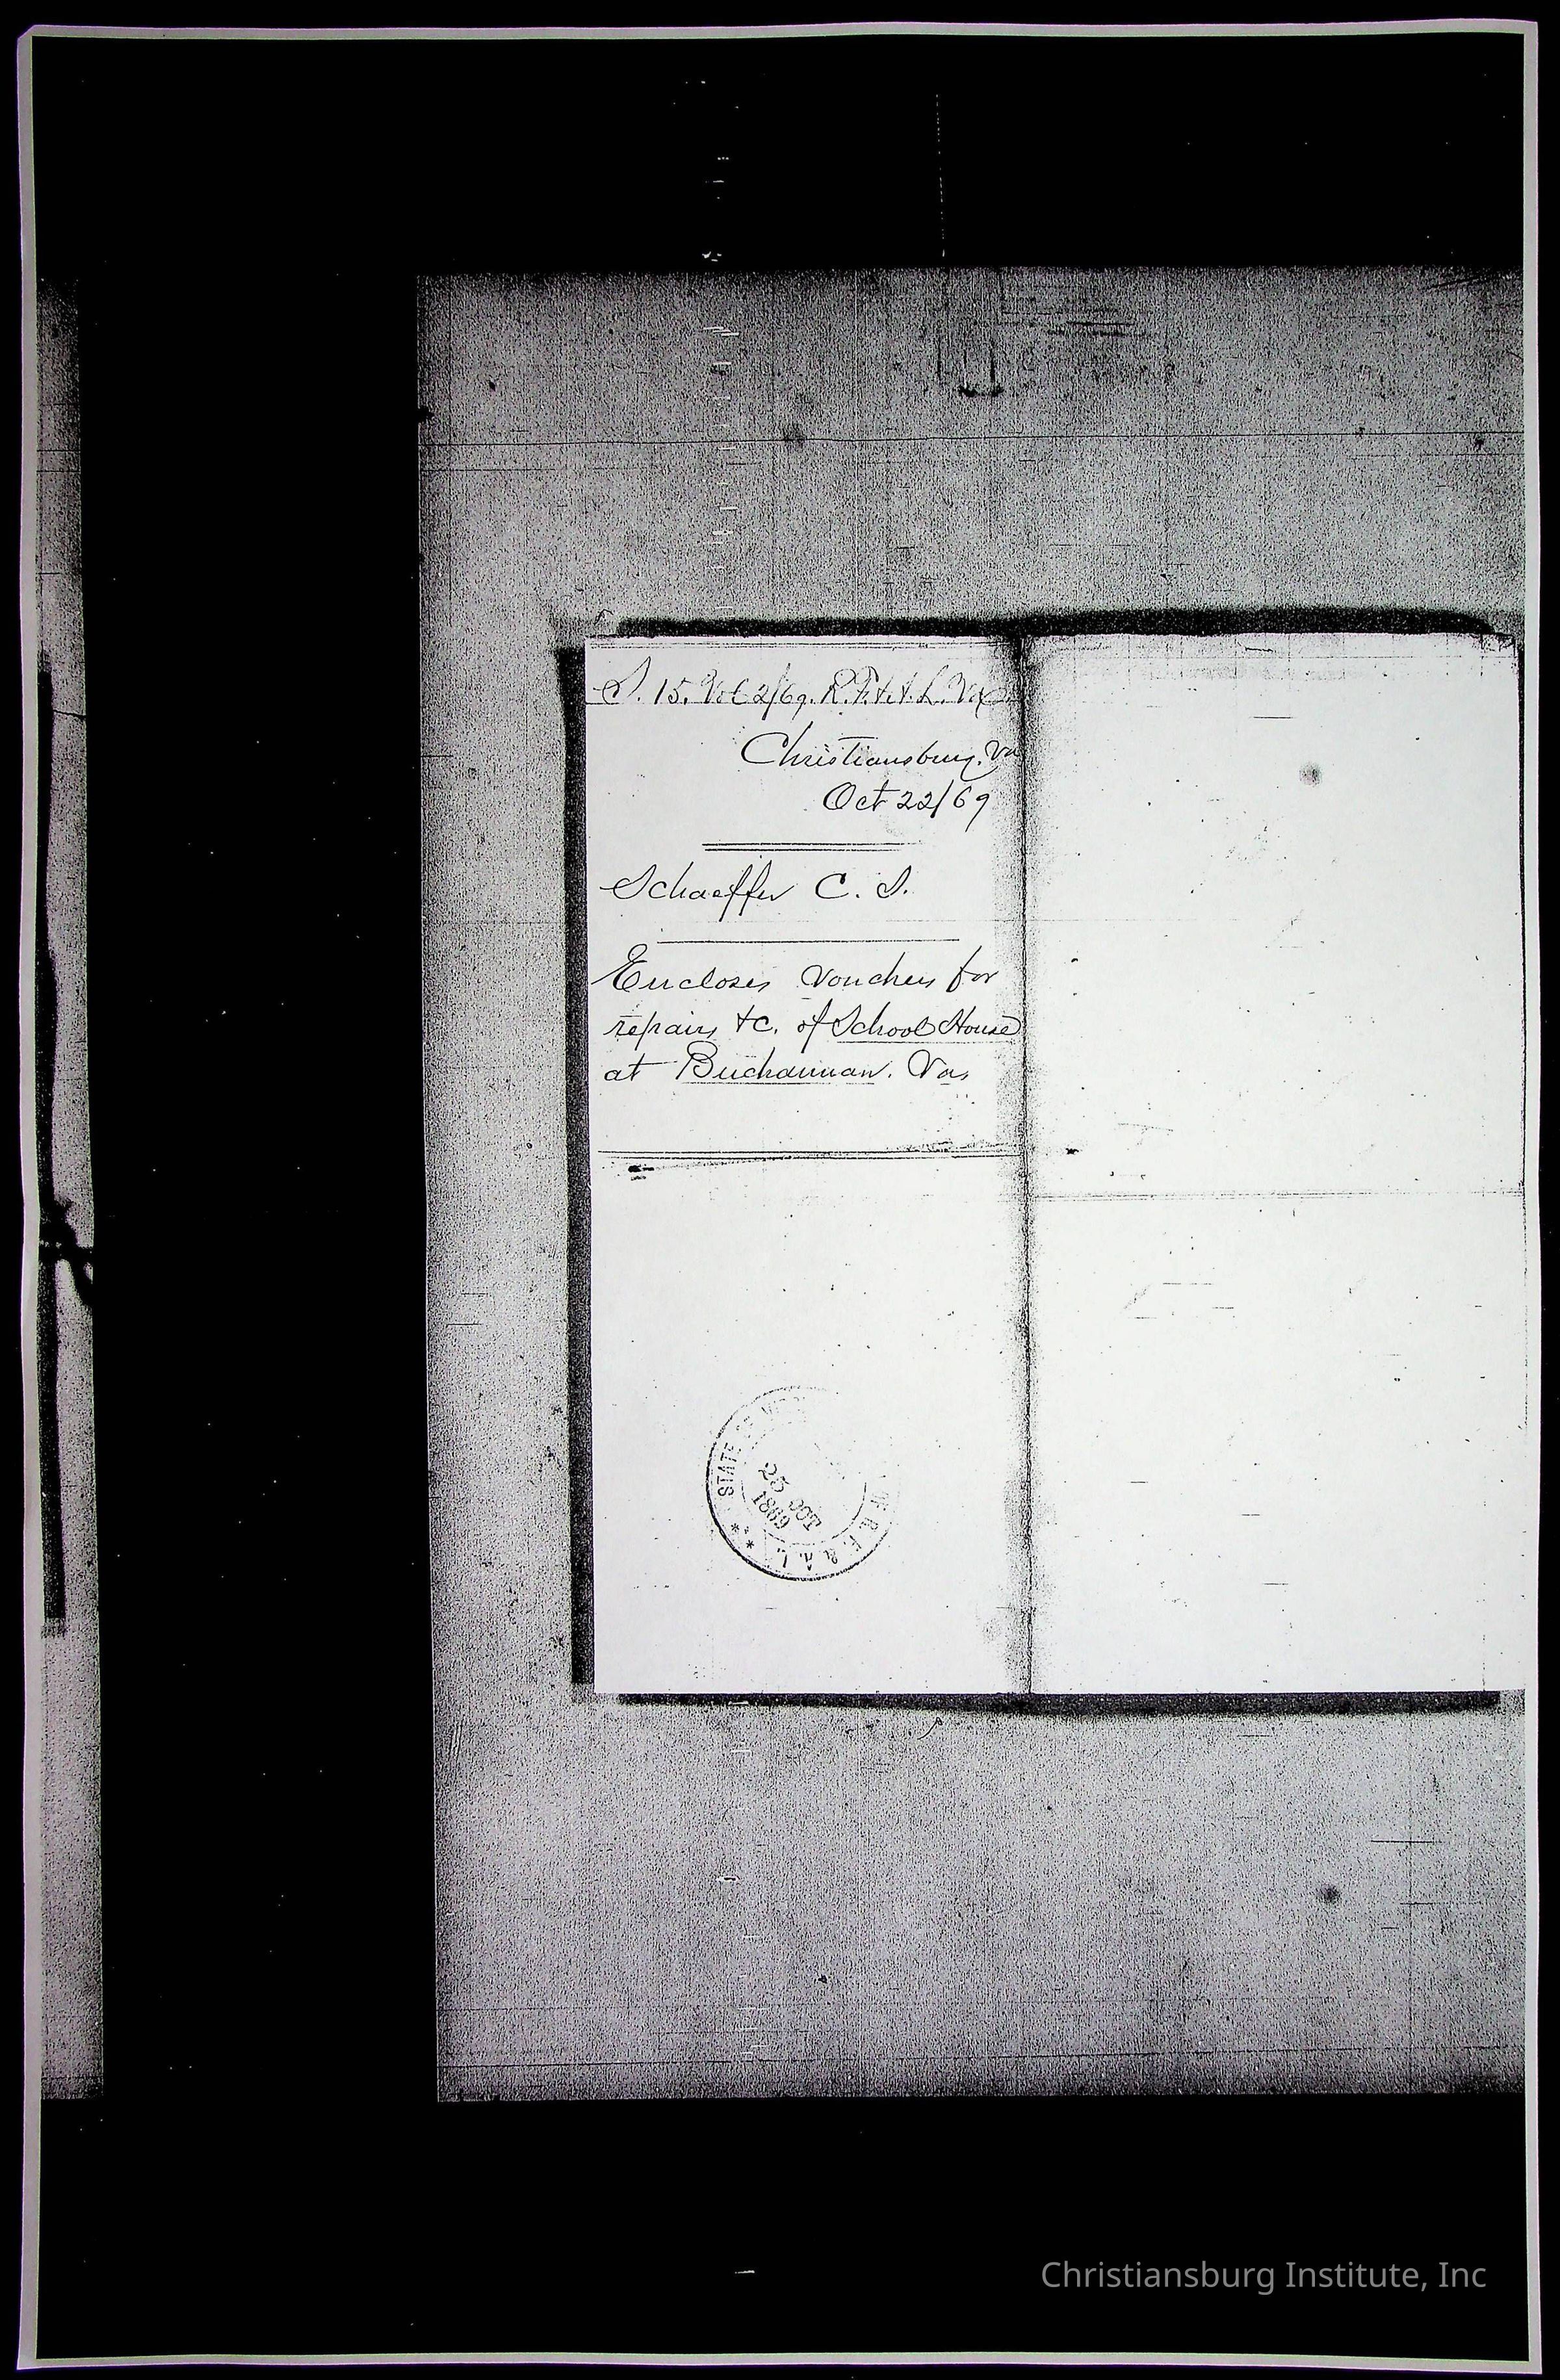 S. 15. Vol 2/69. R.F. & A.L. Va
Christiansburg. Va
Oct 22/69
Schaeffer C. S.
Encloses Vouchers for
repairs &c. of School House
at Buchannan. Va,
STATE OF OF R. F. & A. L.
25 OCT
1869
Christiansburg Institute, Inc